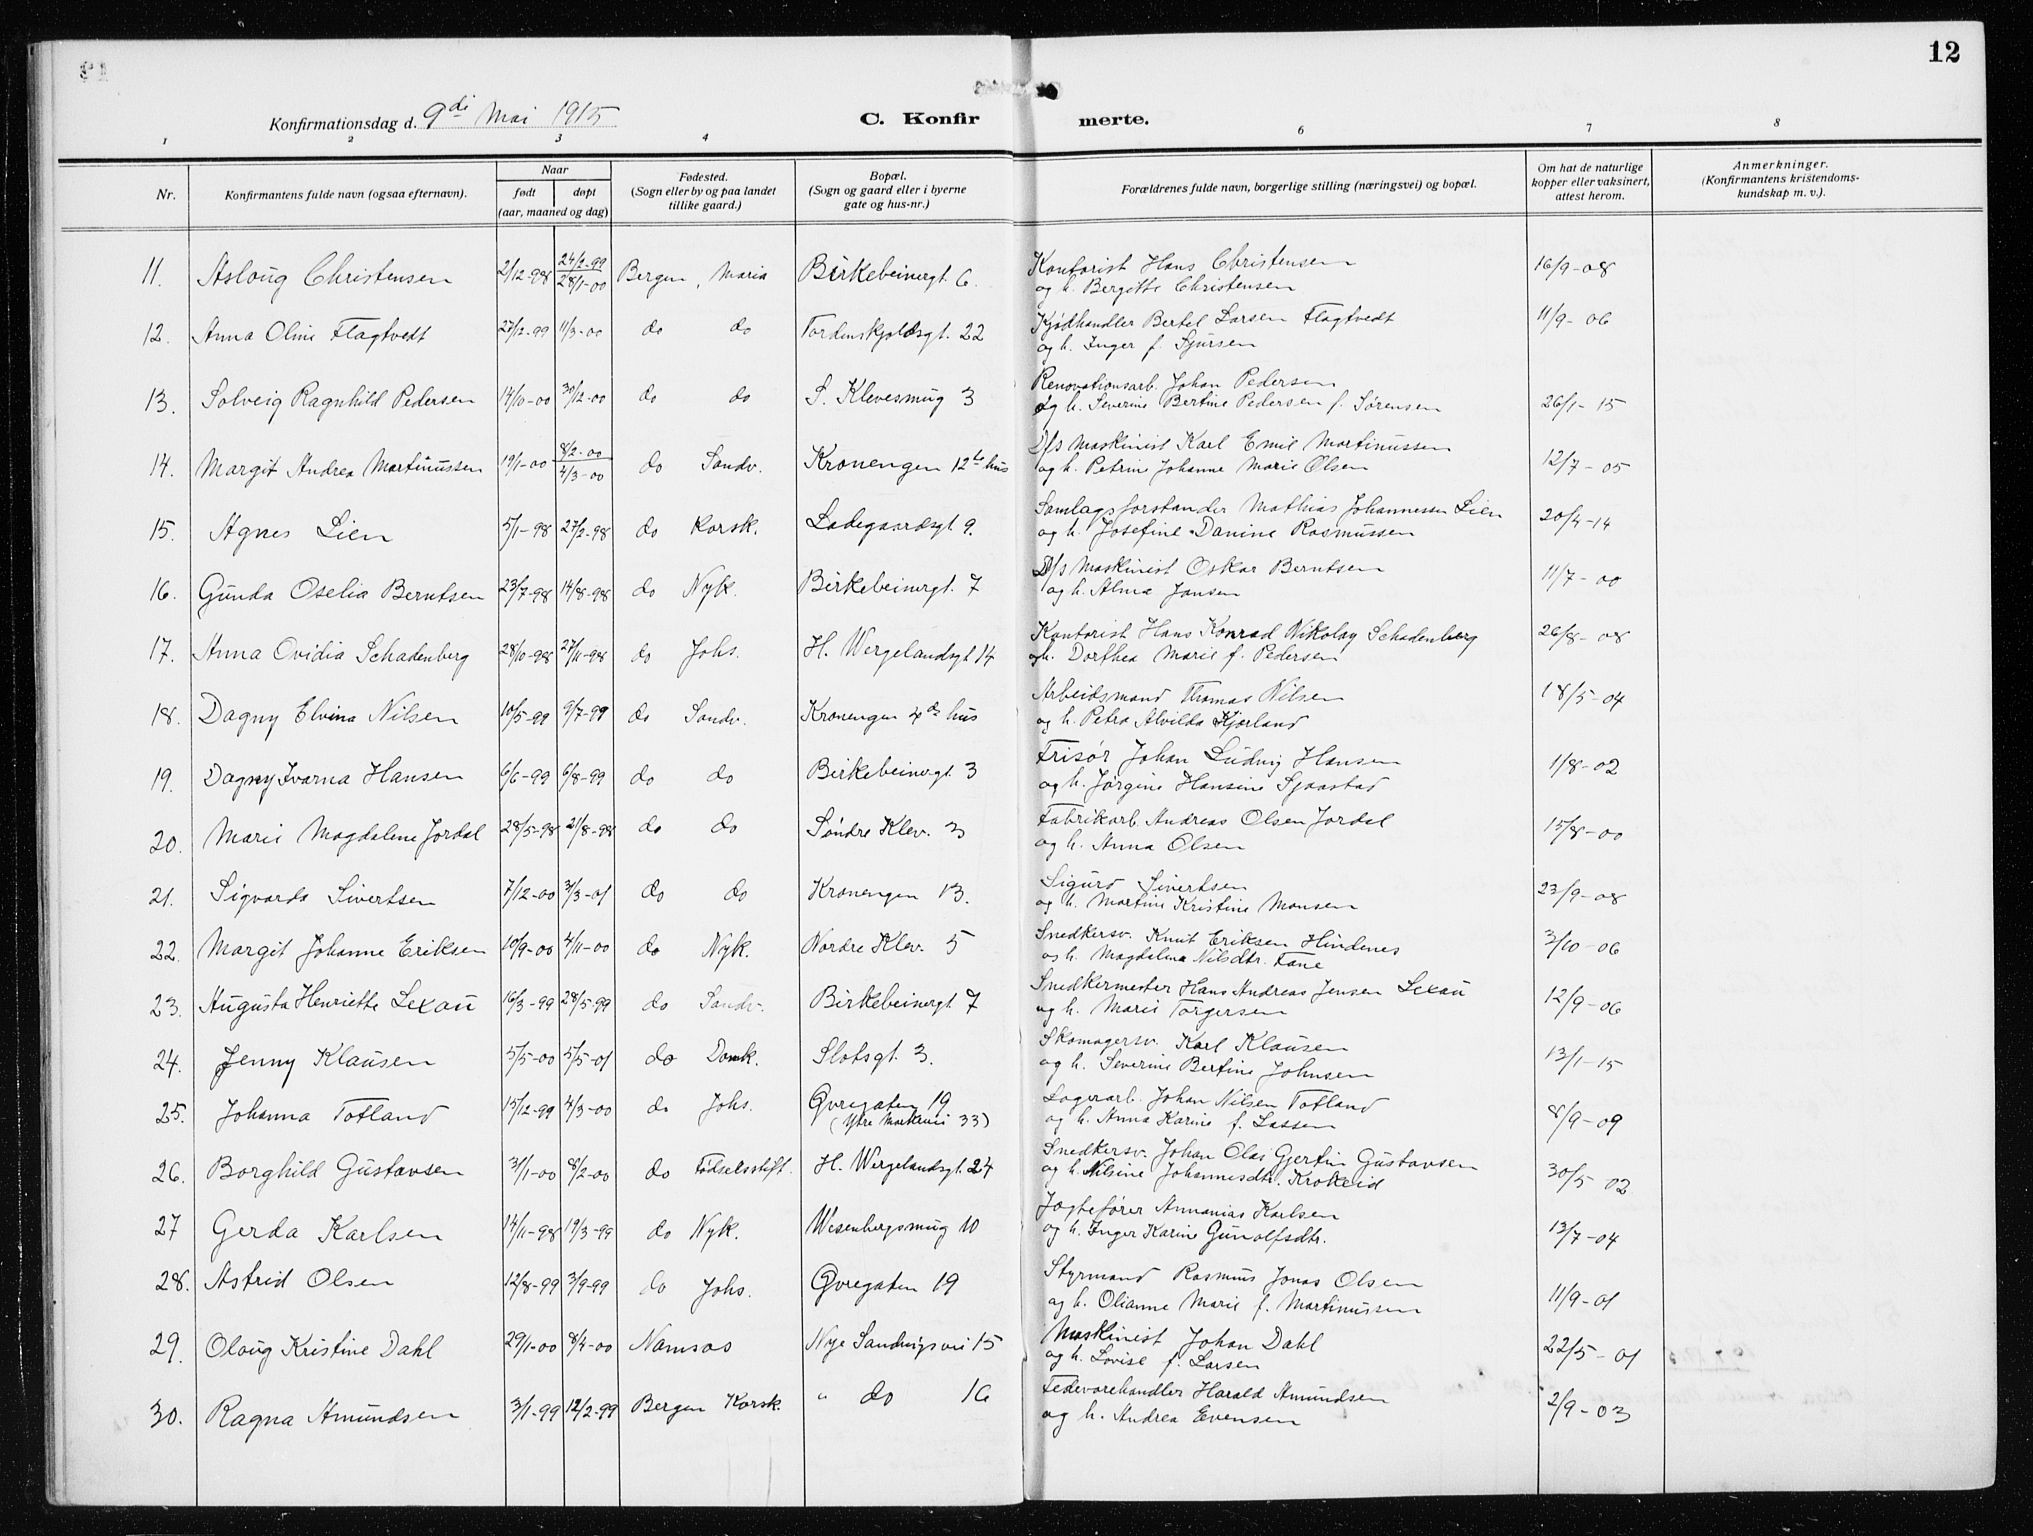 12
Konfirmationsdag d. 9di Mai 1915
C. Konfirmerte.
1 2 3 4 6 7 8
Nr. Konfirmantens fulde navn (ogsaa efternavn). Naar født døpt (aar, maaned og dag) Fødested. (Sogn eller by og paa landet tillike gaard.) Bopæl. (Sogn og gaard eller i byerne gate og hus-nr.) Forældrenes fulde navn, borgerlige stilling (næringsvei) og bopæl. Om hat de naturlige kopper eller vaksinert, attest herom. Anmerkninger. (Konfirmantens kristendomskundskap m. v.).
11. Aslaug Christensen 2/12-98 24/2-99 28/1-00 Bergen, Maria Birkebeinergt. 6. Kontorist Hans Christensen 16/9-08
og h. Bergitte Christensen
12. Anna Oline Flagtvedt 27/2-99 11/3-00 do do Tordenskjoldsgt. 22 Kjødhandler Bertel Larsen Flagtvedt 11/9-06
og h. Inger f. Sjursen
13. Solveig Ragnhild Pedersen 14/10-00 30/12-00 do do S. Klevesmug 3 Renovationsarb. Johan Pedersen
og h. Severine Bertine Pedersen f. Sørensen 26/1-15
14. Margit Andrea Martinussen 19/1-00 8/2-00 4/3-00 do Sandv. Kronengen 12te hus D/s Maskinist Karl Emil Martinussen
og h. Petrine Johanne Marie Olsen 12/7-05
15. Agnes Lien 5/1-98 27/2-98 do Korsk. Ladegaardsgt 9. Samlagsforstander Mathias Johannessen Lien
og h. Josefine Danine Rasmussen 20/4-14
16. Gunda Oselia Berntsen 23/7-98 14/8-98 do Nyk. Birkebeinergt. 7 D/s Maskinist Oskar Berntsen 11/7-00
og h. Alma Jansen
17. Anna Ovidia Schadenberg 28/10-98 27/11-98 do Johs. H. Wergelandsgt 14 Kontorist Hans Konrad Nikolay Schadenberg 26/8-08
og h. Dorthea Marie f. Pedersen
18. Dagny Elvina Nilsen 10/5-99 9/7-99 do Sandv. Kronengen 4de hus Arbeidsmand Thomas Nilsen 18/5-04
og h. Petra Alvilda Kjærland
19. Dagny Ivarna Hansen 6/6-99 6/8-99 do do Birkebeinergt. 3 Frisør Johan Ludvig Hansen 1/8-02
og h. Jørgine Hansine Sjaastad
20. Marie Magdalene Jordal 28/5-98 21/8-98 do do Søndre Klev. 3 Fabrikarb. Andreas Olsen Jordal 15/8-00
og h. Anna Olsen
21. Sigvarda Sivertsen 7/12-00 3/3-01 do do Kronengen 13. Sigurd Sivertsen 23/9-08
og h. Martine Kristine Monsen
22. Margit Johanne Eriksen 10/9-00 4/11-00 do Nyk. Nordre Klev. 5 Snedkersv. Knut Eriksen Hindenes 3/10-06
og h. Magdalena Nilsdtr. Fane
23. Augusta Henriette Lexau 16/3-99 28/5-99 do Sandv. Birkebeinergt 7 Snedkermester Hans Andreas Jensen Lexau 12/9-06
og h. Marie Torgersen
24. Jenny Klausen 5/5-00 5/5-01 do Domk. Slotsgt. 3. Skomagersv. Karl Klausen 13/1-15
og h. Severine Bertine Johnsen
25. Johanna Totland 15/12-99 4/3-00 do Johs. Øvregaten 19 Lagerarb. Johan Nilsen Totland 8/9-09
(Ytre Markevei 33) og h. Anna Karine f. Lassen
26. Borghild Gustavsen 31/1-00 8/2-00 do Fødselsstift. H. Wergelandsgt. 24 Snedkersv. Johan Olai Gjertin Gustavsen
og h. Nilsine Johannesdtr. Krokeid 30/5-02
27 Gerda Karlsen 14/11-98 19/3-99 do Nyk. Wesenbergsmug 10 Jagtefører Annanias Karlsen
og h. Inger Karine Gunolfsdtr. 13/7-04
28. Astrid Olsen 12/8-99 3/9-99 do Johs. Øvregaten 19 Styrmand Rasmus Jonas Olsen
og h. Olianne Marie f. Martinussen 11/9-01
29. Olaug Kristine Dahl 29/1-00 8/4-00 Namsos Nye Sandvigsvei 15 Maskinist Johan Dahl 22/5-01
og h. Lovise f. Larsen
30. Ragna Amundsen 3/1-99 12/2-99 Bergen Korsk. " do 16 Fedevarehandler Harald Amundsen 2/9-03
og h. Andrea Evensen